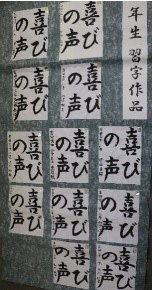 年生 習字作品
喜び
の声
喜び
の声
喜び
の声
喜び
の声
喜び
の声
喜び
の声
喜び
の声
喜び
の声
喜び
の声
喜び
の声